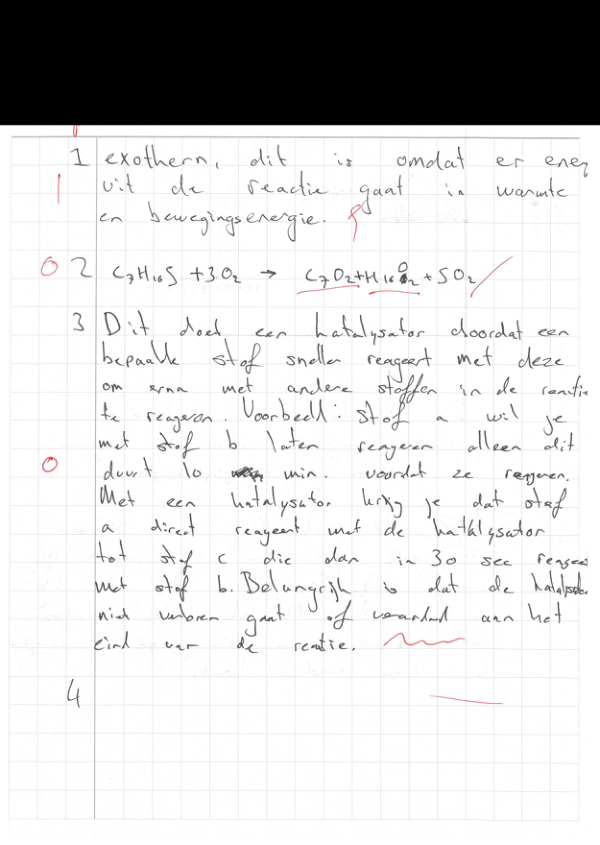 1 exotherm, dit is omdat er ener
1 uit de reactie gaat in warmte
en bewegingsenergie.
0 2 C7H16S + 3O2 → C7O2 + H16O2 + SO2
3 Dit doet een katalysator doordat een
bepaalde stof sneller reageert met deze
om erna met andere stoffen in de reactie
te reageren. Voorbeeld: stof a wil je
met stof b laten reageren alleen dit
0 duurt 10 min. voordat ze reageren.
Met een katalysator krijg je dat stof
a direct reageert met de katalysator
tot stof c die dan in 30 sec reageer
met stof b. Belangrijk is dat de katalysator
niet verloren gaat of veranderd aan het
eind van de reactie.
4